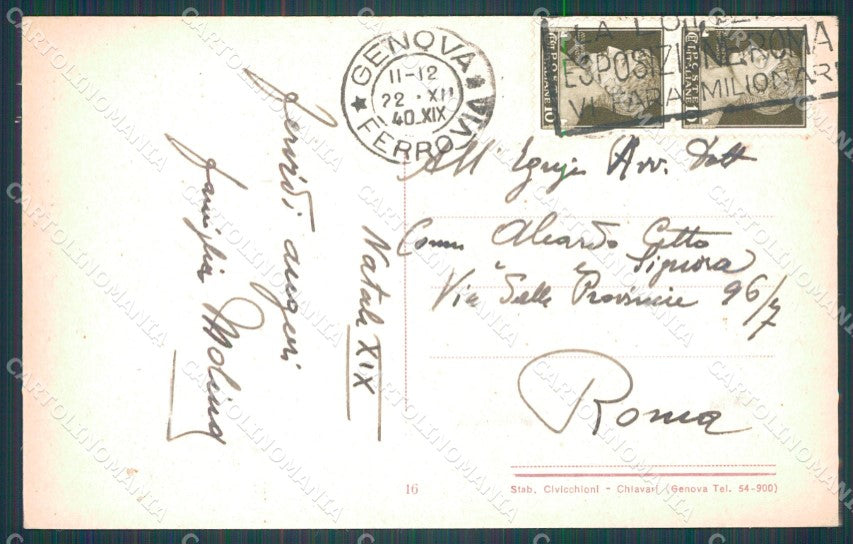 GENOVA
FERROVIA
11-12
22 · XII
40.XIX
ESPOSIZIONE ROMA
VI FARA MILIONARI
POSTE
ITALIANE
10
POSTE
ITALIANE
10
All' Egregio Avv. Dott
Comm Alcardo
e Signora
Via Delle Provincie 96/7
Roma
Natale XIX
Fervidi auguri
famiglia Molina
16
Stab. Civicchioni - Chiavari (Genova Tel. 54-900)
CARTOLINOMANIA